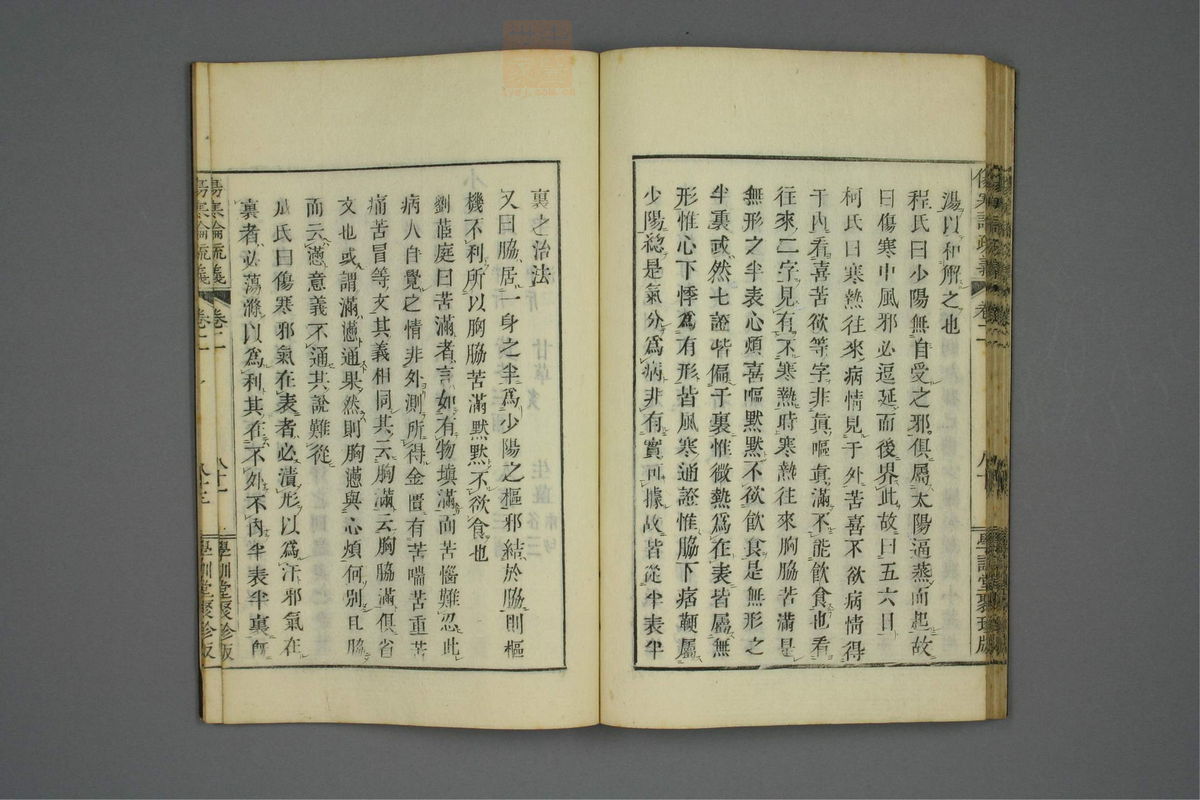 湯以和解之也
程氏曰少陽無自受之邪俱屬太陽逼蒸而起故
曰傷寒中風邪必逗延而後界此故曰五六日
柯氏曰寒熱往來病情見于外苦喜不欲病情得
于內看喜苦欲等字非眞嘔眞滿不能飲食也看
往來二字見有不寒熱時寒熱往來胸脇苦滿是
無形之半表心煩喜嘔默默不欲飲食是無形之
半裏或然七證皆偏于裏惟微熱爲在表皆屬無
形惟心下悸爲有形皆風寒通證惟脇下痞鞕屬
少陽總是氣分爲病非有實可據故皆從半表半
裏之治法
又曰脇居一身之半爲少陽之樞邪結於脇則樞
機不利所以胸脇苦滿默默不欲食也
劉茝庭曰苦滿者言如有物塡滿而苦惱難忍此
病人自覺之情非外測所得金匱有苦喘苦重苦
痛苦冒等文其義相同其云胸滿云胸脇滿俱省
文也或謂滿懣通果然則胸懣與心煩何別且脇
而云懣意義不通其說難從
成氏曰傷寒邪氣在表者必漬形以爲汗邪氣在
裏者必蕩滌以爲利其在不外不內半表半裏既
傷寒論疏義
卷二
學訓堂聚珍版